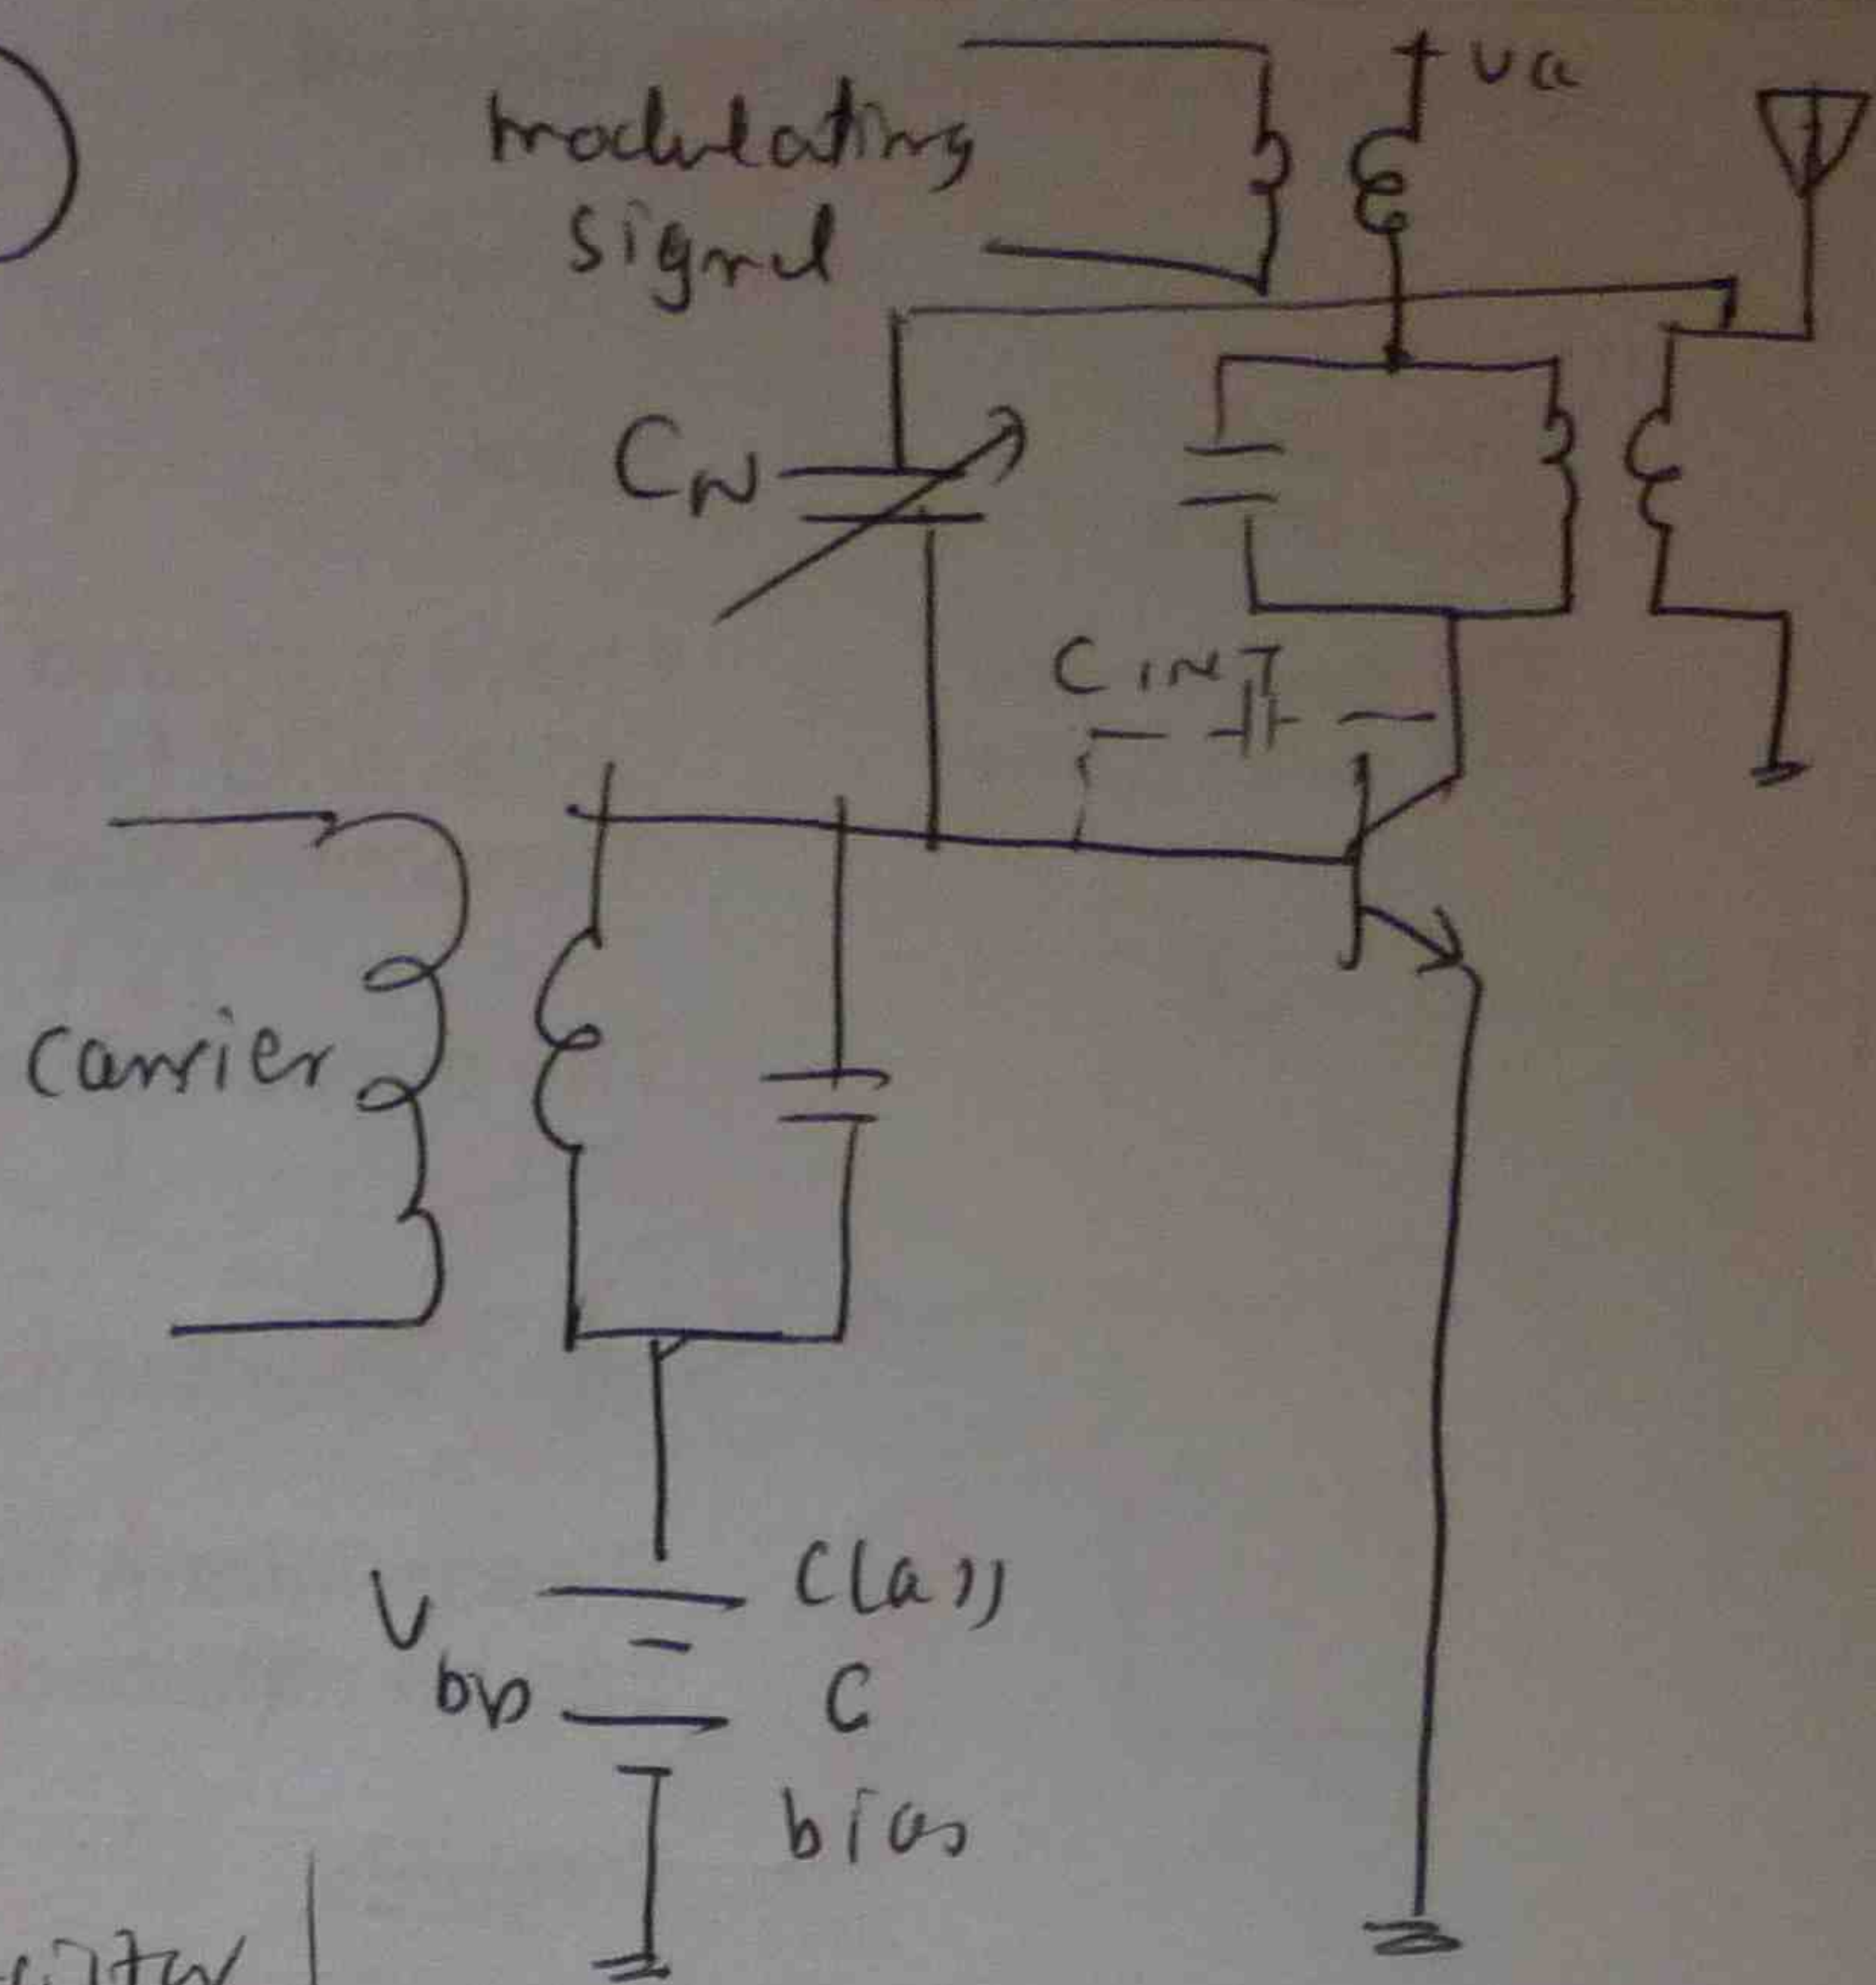 modulating
signal
+ Vcc
CN
CINT
carrier
Vbb
Class
C
bias